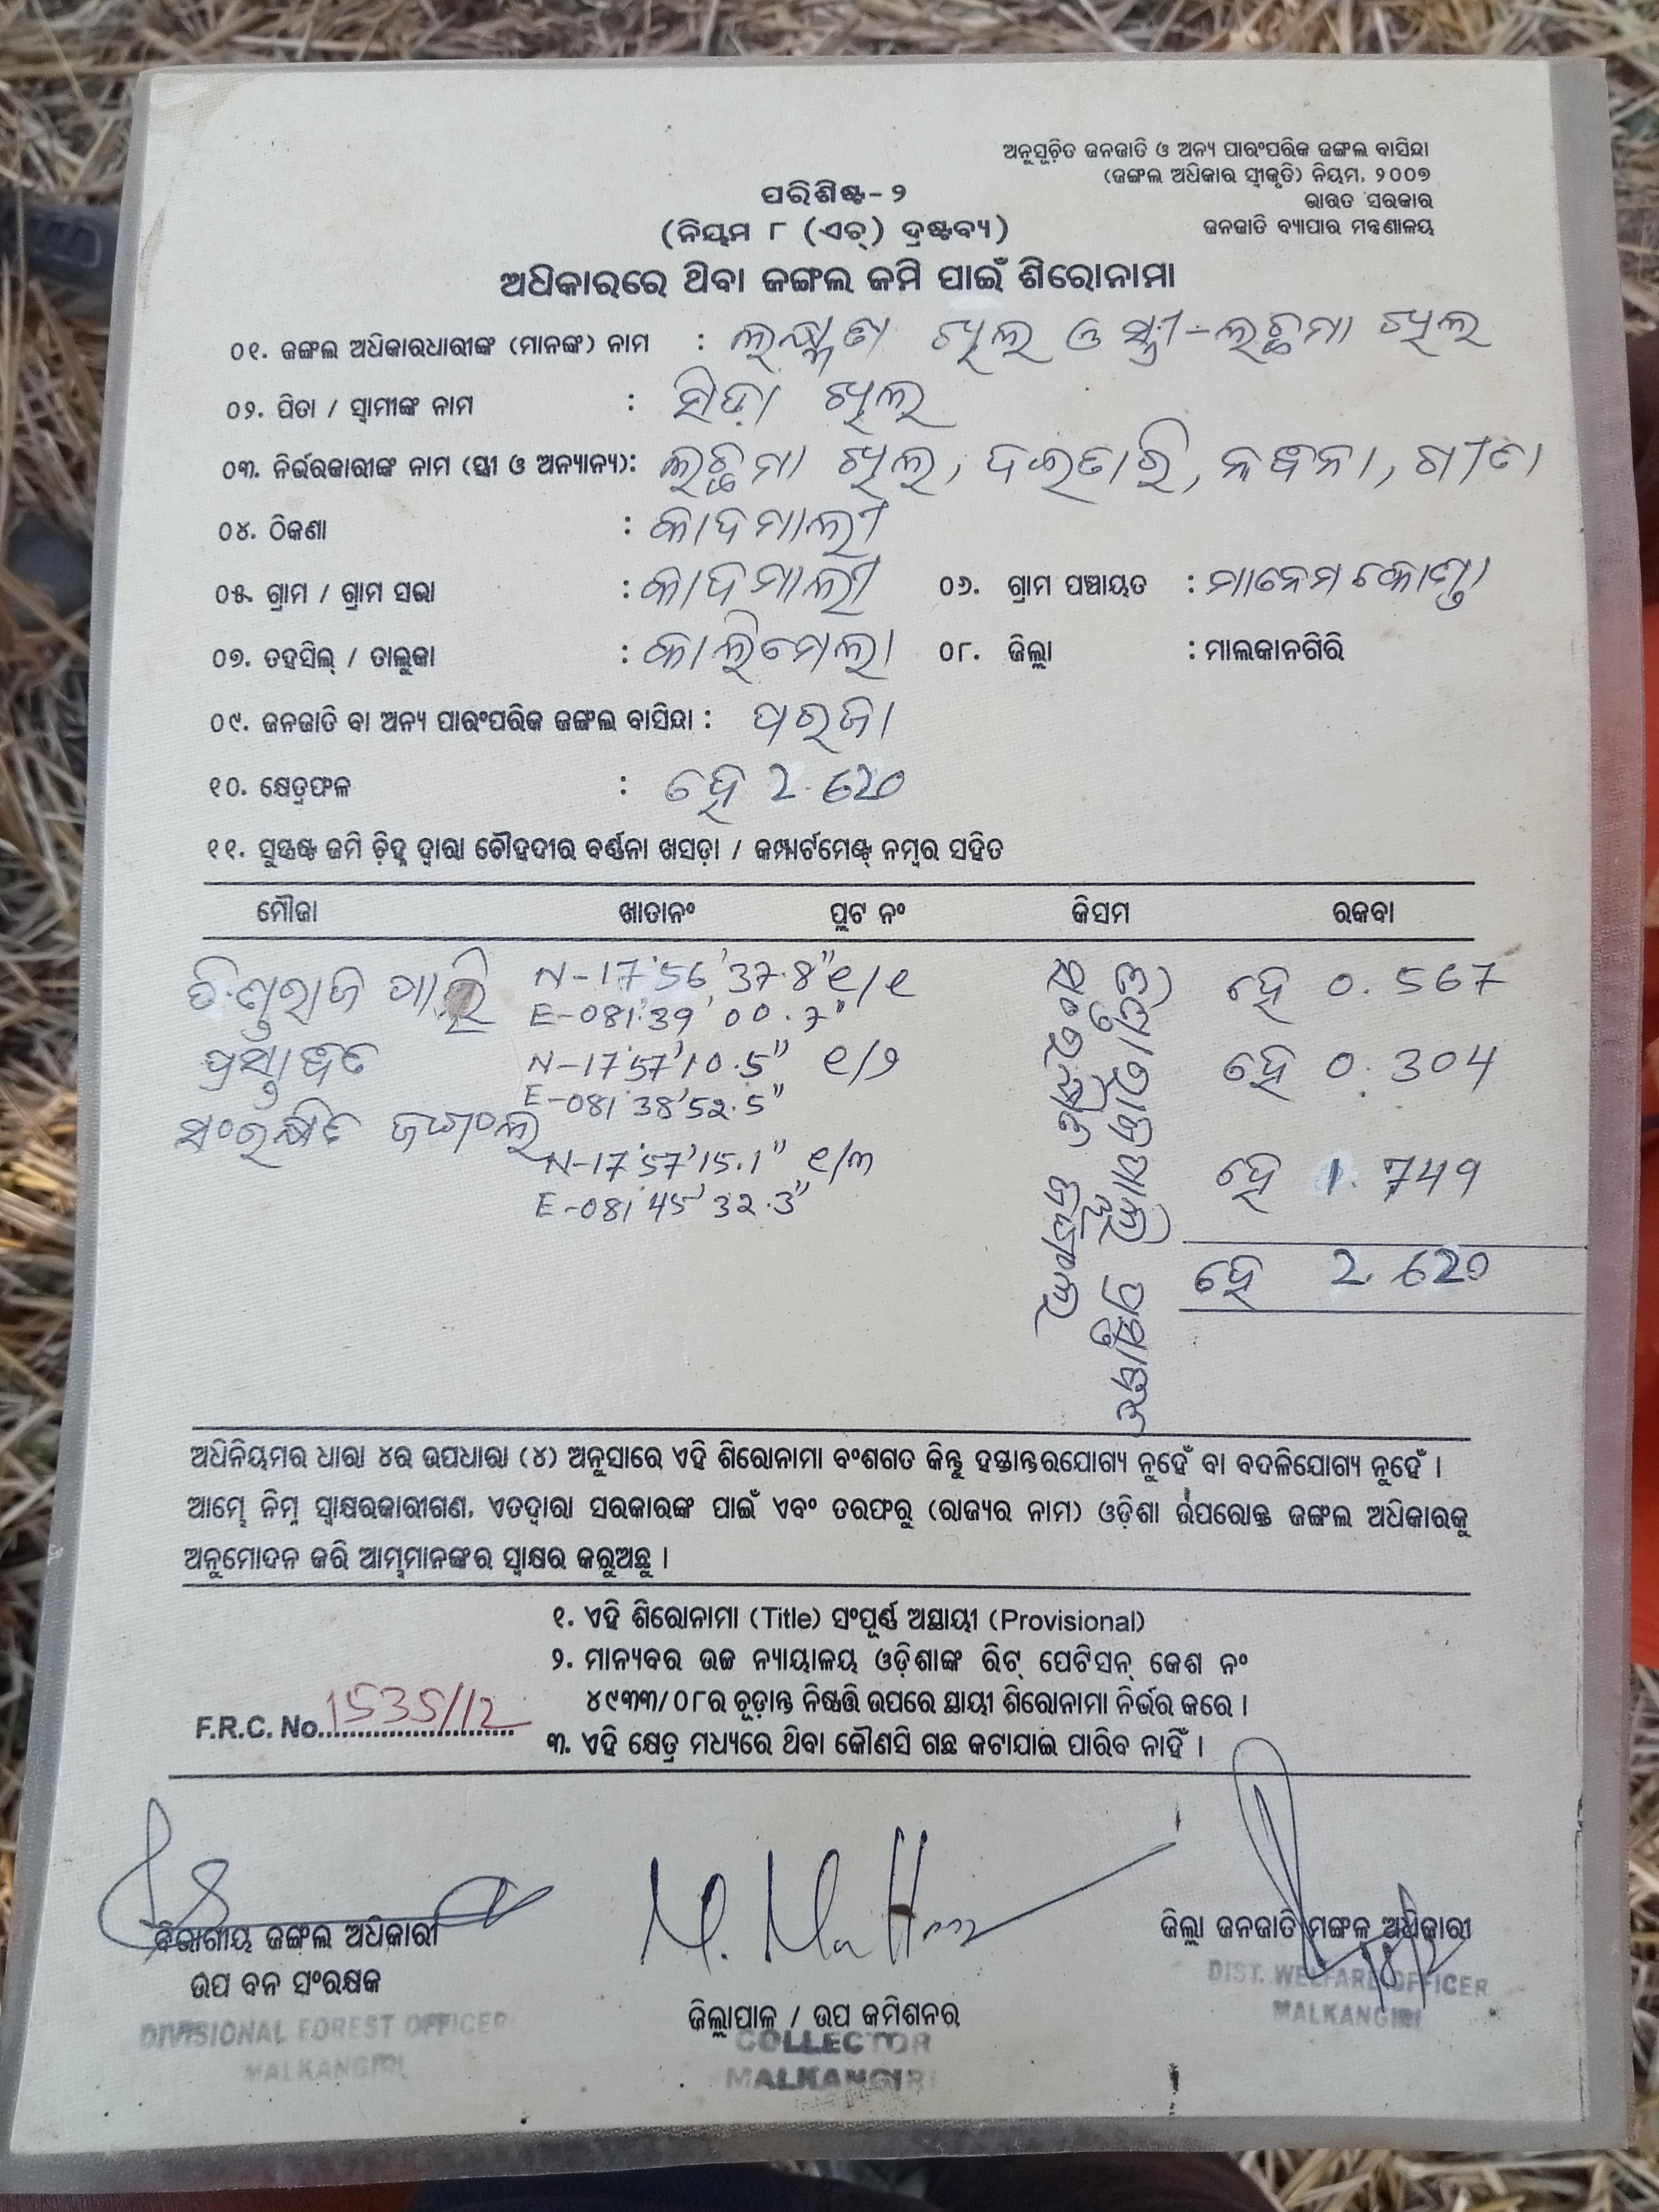 ଅନୁସୂଚିତ ଜନଜାତି ଓ ଅନ୍ୟ ପାରଂପରିକ ଜଙ୍ଗଲ ବାସିନ୍ଦା
(ଜଙ୍ଗଲ ଅଧିକାର ସ୍ୱୀକୃତି) ନିୟମ, ୨୦୦୭
ଭାରତ ସରକାର
ଜନଜାତି ବ୍ୟାପାର ମନ୍ତ୍ରଣାଳୟ
ପରିଶିଷ୍ଟ-୨
(ନିୟମ ୮ (ଏଚ୍) ଦ୍ରଷ୍ଟବ୍ୟ)
ଅଧିକାରରେ ଥିବା ଜଙ୍ଗଲ ଜମି ପାଇଁ ଶିରୋନାମା
୦୧. ଜଙ୍ଗଲ ଅଧିକାରଧାରୀଙ୍କ (ମାନଙ୍କ) ନାମ : ଖିଲ ଓ ସ୍ତ୍ରୀ-ଲଚ୍ଛମା ଖିଲ
୦୨. ପିତା / ସ୍ୱାମୀଙ୍କ ନାମ : ଖିଲ
୦୩. ନିର୍ଭରକାରୀଙ୍କ ନାମ (ସ୍ତ୍ରୀ ଓ ଅନ୍ୟାନ୍ୟ): ଲଚ୍ଛମା ଖିଲ, ଦଇତାରି, ଗୀତା
୦୪. ଠିକଣା : କାଦମାଲୀ
୦୫. ଗ୍ରାମ / ଗ୍ରାମ ସଭା : କାଦମାଲୀ ୦୬. ଗ୍ରାମ ପଞ୍ଚାୟତ : ମାନେମକୋଣ୍ଡା
୦୭. ତହସିଲ୍ / ତାଲୁକା : କାଲିମେଲା ୦୮. ଜିଲ୍ଲା : ମାଲକାନଗିରି
୦୯. ଜନଜାତି ବା ଅନ୍ୟ ପାରଂପରିକ ଜଙ୍ଗଲ ବାସିନ୍ଦା : ପରଜା
୧୦. କ୍ଷେତ୍ରଫଳ : ହେ 2.620
୧୧. ସୁସ୍ପଷ୍ଟ ଜମି ଚିହ୍ନ ଦ୍ୱାରା ଚୌହଦୀର ବର୍ଣ୍ଣନା ଖସଡ଼ା / କମ୍ପାର୍ଟମେଣ୍ଟ୍ ନମ୍ବର ସହିତ
ମୌଜା ଖାତାନଂ ପ୍ଲଟ ନଂ କିସମ ରକବା
N-17°56'37.8" ୧/୧ ହେ 0.567
E-081°39'00.7"
ପ୍ରସ୍ତାବିତ N-17°57'10.5" ୧/୨ ହେ 0.304
E-081°38'52.5"
ସଂରକ୍ଷିତ ଜଙ୍ଗଲ N-17°57'15.1" ୧/୩ ହେ 1.749
E-081°45'32.3"
ହେ 2.620
ପ୍ରସ୍ତାବିତ
ସଂରକ୍ଷିତ ଜଙ୍ଗଲ
ଅଧିନିୟମର ଧାରା ୪ର ଉପଧାରା (୪) ଅନୁସାରେ ଏହି ଶିରୋନାମା ବଂଶଗତ କିନ୍ତୁ ହସ୍ତାନ୍ତରଯୋଗ୍ୟ ନୁହେଁ ବା ବଦଳିଯୋଗ୍ୟ ନୁହେଁ ।
ଆମ୍ଭେ ନିମ୍ନ ସ୍ୱାକ୍ଷରକାରୀଗଣ, ଏତଦ୍ୱାରା ସରକାରଙ୍କ ପାଇଁ ଏବଂ ତରଫରୁ (ରାଜ୍ୟର ନାମ) ଓଡ଼ିଶା ଉପରୋକ୍ତ ଜଙ୍ଗଲ ଅଧିକାରକୁ
ଅନୁମୋଦନ କରି ଆମ୍ଭମାନଙ୍କର ସ୍ୱାକ୍ଷର କରୁଅଛୁ ।
୧. ଏହି ଶିରୋନାମା (Title) ସଂପୂର୍ଣ୍ଣ ଅସ୍ଥାୟୀ (Provisional)
୨. ମାନ୍ୟବର ଉଚ୍ଚ ନ୍ୟାୟାଳୟ ଓଡ଼ିଶାଙ୍କ ରିଟ୍ ପେଟିସନ୍ କେଶ ନଂ
୪୯୩୩/୦୮ର ଚୂଡ଼ାନ୍ତ ନିଷ୍ପତ୍ତି ଉପରେ ସ୍ଥାୟୀ ଶିରୋନାମା ନିର୍ଭର କରେ ।
F.R.C. No. 1535/12
୩. ଏହି କ୍ଷେତ୍ର ମଧ୍ୟରେ ଥିବା କୌଣସି ଗଛ କଟାଯାଇ ପାରିବ ନାହିଁ ।
ବିଭାଗୀୟ ଜଙ୍ଗଲ ଅଧିକାରୀ
ଉପ ବନ ସଂରକ୍ଷକ
DIVISIONAL FOREST OFFICER
MALKANGIRI
ଜିଲ୍ଲାପାଳ / ଉପ କମିଶନର
COLLECTOR
MALKANGIRI
ଜିଲ୍ଲା ଜନଜାତି ମଙ୍ଗଳ ଅଧିକାରୀ
DIST. WELFARE OFFICER
MALKANGIRI